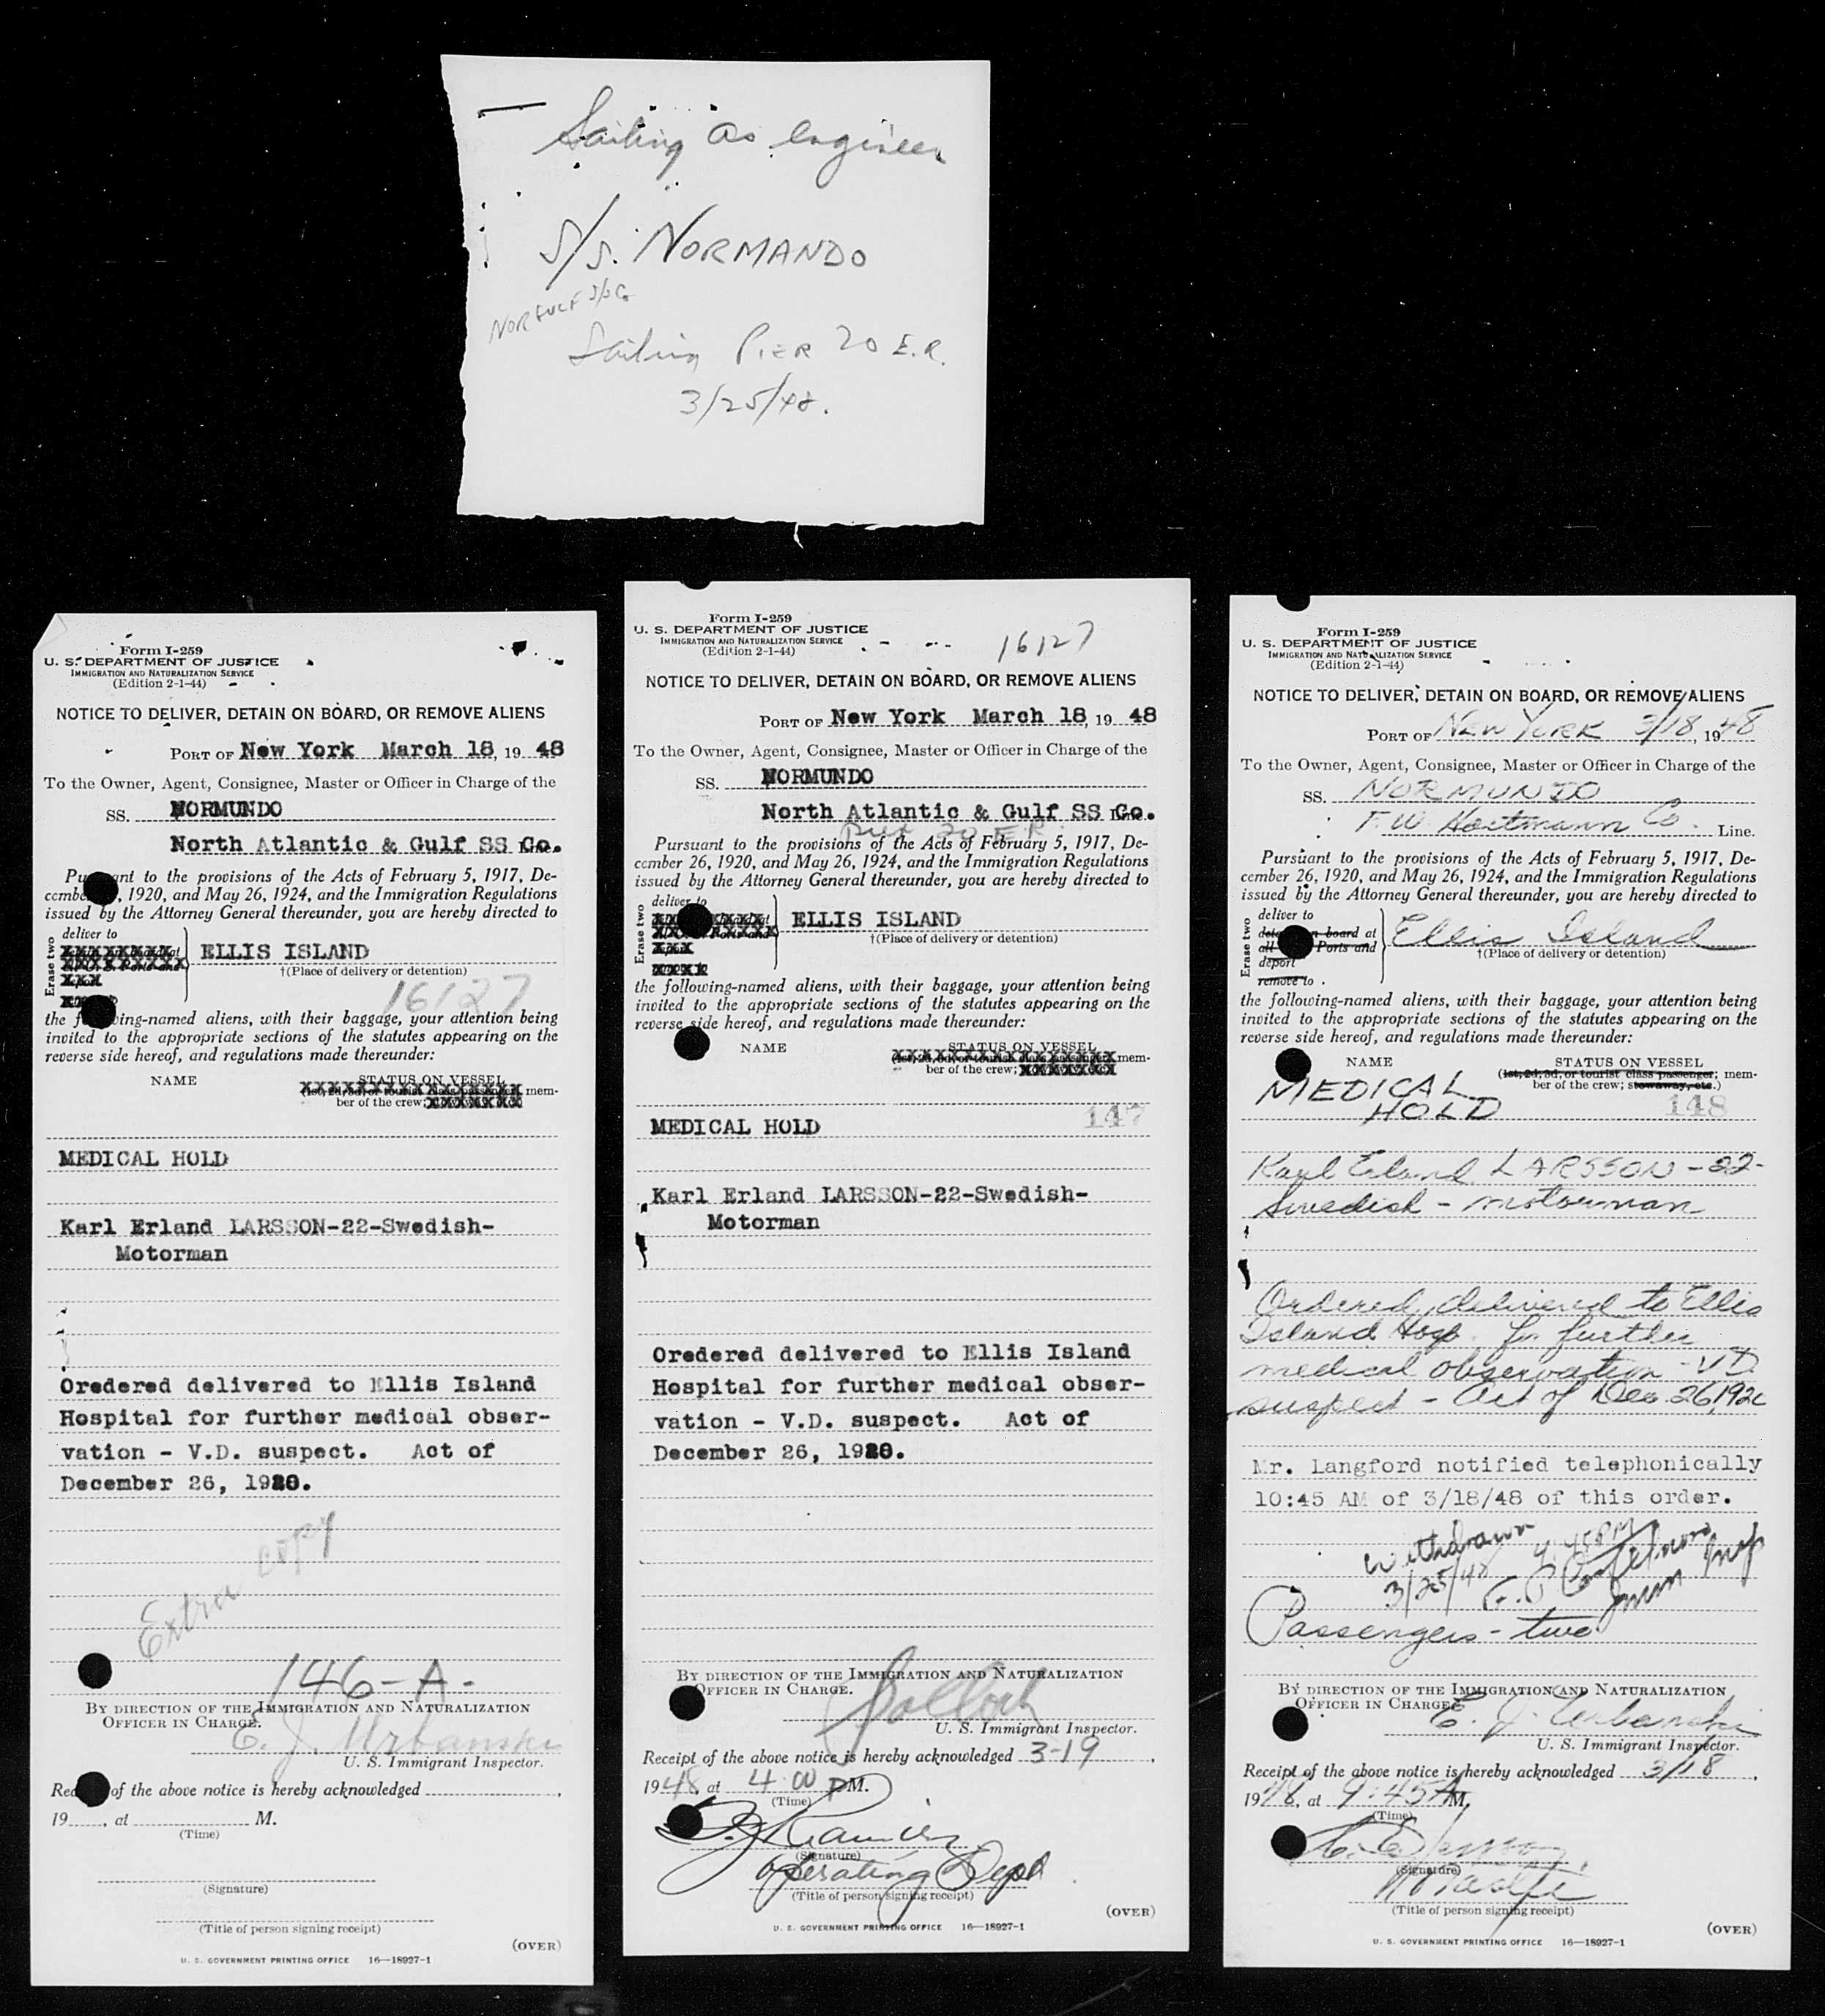 Sailing as engineer
S/S. NORMANDO
NORGULF S/S Co
Sailing PIER 20 E.R.
3/25/48.
Form I-259
U. S. DEPARTMENT OF JUSTICE
IMMIGRATION AND NATURALIZATION SERVICE
(Edition 2-1-44)
NOTICE TO DELIVER, DETAIN ON BOARD, OR REMOVE ALIENS
PORT OF New York March 18, 19 48
To the Owner, Agent, Consignee, Master or Officer in Charge of the
SS. NORMUNDO
North Atlantic & Gulf SS Co.
Pursuant to the provisions of the Acts of February 5, 1917, De-
cember , 1920, and May 26, 1924, and the Immigration Regulations
issued by the Attorney General thereunder, you are hereby directed to
Erase two
deliver to
ELLIS ISLAND
†(Place of delivery or detention)
16127
the following-named aliens, with their baggage, your attention being
invited to the appropriate sections of the statutes appearing on the
reverse side hereof, and regulations made thereunder:
NAME STATUS ON VESSEL
(1st, 2d, 3d, or tourist class passenger; mem-
ber of the crew;
MEDICAL HOLD
Karl Erland LARSSON-22-Swedish-
Motorman
Oredered delivered to Ellis Island
Hospital for further medical obser-
vation - V.D. suspect. Act of
December 26, 1920.
Extra copy
146-A-
BY DIRECTION OF THE IMMIGRATION AND NATURALIZATION
OFFICER IN CHARGE.
E. J. Urbanski
U. S. Immigrant Inspector.
Rec of the above notice is hereby acknowledged ,
19 , at M.
(Time)
(Signature)
(Title of person signing receipt)
(OVER)
U. S. GOVERNMENT PRINTING OFFICE 16—18927-1
Form I-259
U. S. DEPARTMENT OF JUSTICE
IMMIGRATION AND NATURALIZATION SERVICE
(Edition 2-1-44)
16127
NOTICE TO DELIVER, DETAIN ON BOARD, OR REMOVE ALIENS
PORT OF New York March 18, 19 48
To the Owner, Agent, Consignee, Master or Officer in Charge of the
SS. NORMUNDO
North Atlantic & Gulf SS Co.
Pier 20 E R
Pursuant to the provisions of the Acts of February 5, 1917, De-
cember 26, 1920, and May 26, 1924, and the Immigration Regulations
issued by the Attorney General thereunder, you are hereby directed to
Erase two
deliver to
ELLIS ISLAND
†(Place of delivery or detention)
the following-named aliens, with their baggage, your attention being
invited to the appropriate sections of the statutes appearing on the
reverse side hereof, and regulations made thereunder:
NAME STATUS ON VESSEL
(1st, 2d, 3d, or tourist class passenger; mem-
ber of the crew;
MEDICAL HOLD 147
Karl Erland LARSSON-22-Swedish-
Motorman
Oredered delivered to Ellis Island
Hospital for further medical obser-
vation - V.D. suspect. Act of
December 26, 1920.
BY DIRECTION OF THE IMMIGRATION AND NATURALIZATION
OFFICER IN CHARGE.
U. S. Immigrant Inspector.
Receipt of the above notice is hereby acknowledged 3-19 ,
1948, at 4:00 PM.
(Time)
(Signature)
Operating Dept
(Title of person signing receipt)
(OVER)
U. S. GOVERNMENT PRINTING OFFICE 16—18927-1
Form I-259
U. S. DEPARTMENT OF JUSTICE
IMMIGRATION AND NATURALIZATION SERVICE
(Edition 2-1-44)
NOTICE TO DELIVER, DETAIN ON BOARD, OR REMOVE ALIENS
PORT OF NEW YORK 3/18, 1948
To the Owner, Agent, Consignee, Master or Officer in Charge of the
SS. NORMUNDO
F. W. Hartmann Co. Line.
Pursuant to the provisions of the Acts of February 5, 1917, De-
cember 26, 1920, and May 26, 1924, and the Immigration Regulations
issued by the Attorney General thereunder, you are hereby directed to
Erase two
deliver to
detain on board at
all U. S. Ports and
deport
remove to
Ellis Island
†(Place of delivery or detention)
the following-named aliens, with their baggage, your attention being
invited to the appropriate sections of the statutes appearing on the
reverse side hereof, and regulations made thereunder:
NAME STATUS ON VESSEL
(1st, 2d, 3d, or tourist class passenger; mem-
ber of the crew; stowaway, etc.)
MEDICAL
HOLD 148
Karl Erland LARSSON-22-
Swedish - motorman
Ordered delivered to Ellis
Island Hosp. for further
medical observation - VD
suspect - Act of Dec. 26, 1920
Mr. Langford notified telephonically
10:45 AM of 3/18/48 of this order.
Withdrawn
3/25/48 4:45PM
Imm Insp
Passengers - two
BY DIRECTION OF THE IMMIGRATION AND NATURALIZATION
OFFICER IN CHARGE
E. J. Urbanski
U. S. Immigrant Inspector.
Receipt of the above notice is hereby acknowledged 3/18 ,
1948, at 9:45 AM.
(Time)
(Signature)
(Title of person signing receipt)
(OVER)
U. S. GOVERNMENT PRINTING OFFICE 16—18927-1